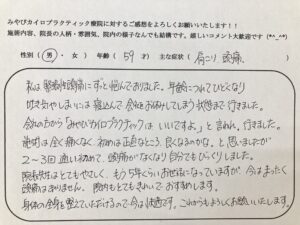 みやびカイロプラクティック療院に対するご感想をよろしくお願いいたします！！
施術内容、院長の人柄・雰囲気、院内の様子などなんでも結構です。嬉しいコメント大歓迎です（*^_^*）
性別（ 男 ・ 女 ） 年齢（ 59 才） 主な症状（ 肩こり 頭痛 ）
私は緊張性頭痛にずっと悩んでおりました。年齢につれてひどくなり
吐き気やしまいには寝込んで会社をお休みしてしまう状態まで行きました。
会社の方から「みやびカイロプラクティックはいいですよ」と言われ、行きました。
施術は全く痛くなく、初めは正直なところ、良くなるのかな、と思いましたが
2〜3回通い初めて、頭痛がなくなり自分でもびっくりしました。
院長先生はとてもやさしく、もう5年くらいお世話になっていますが今はまったく
頭痛はありません。院内もとてもきれいで おすすめします。
身体の全身を整えていただけるので今は快適です。これからもよろしくお願いいたします。